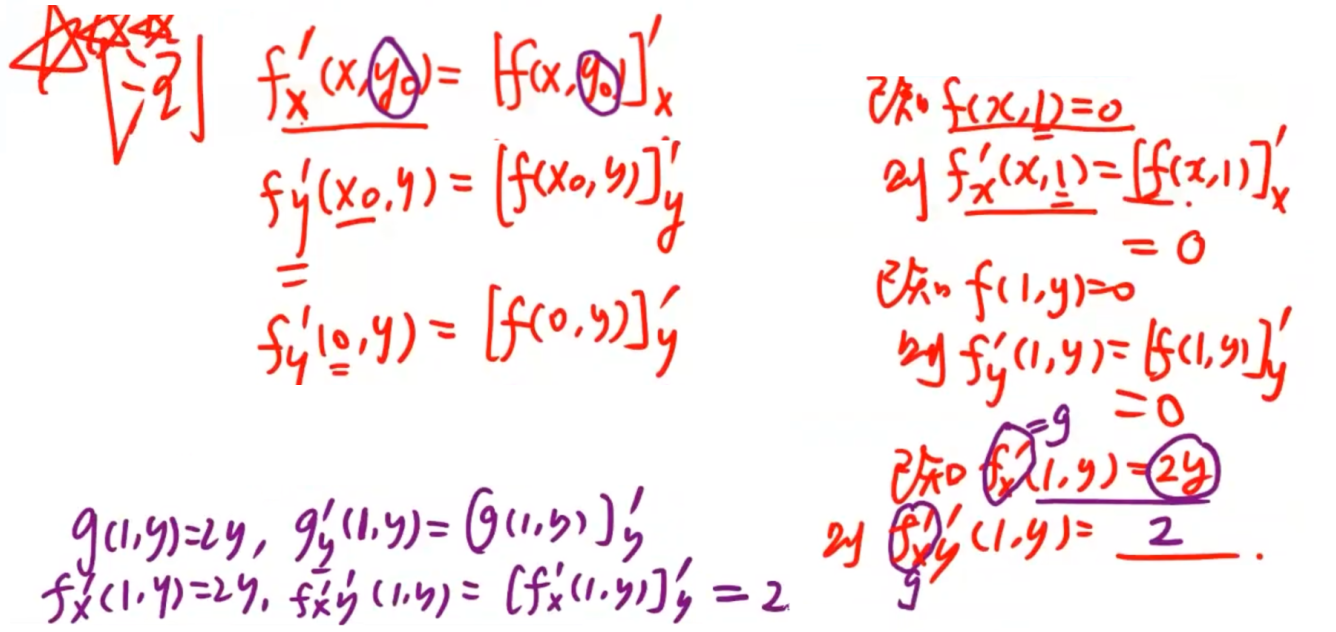 [注2]
f'x(x,y₀)=[f(x,y₀)]'x
f'y(x₀,y)=[f(x₀,y)]'y
=
f'y(0,y)=[f(0,y)]'y
已知 f(x,1)=0
则 f'x(x,1)=[f(x,1)]'x
=0
已知 f(1,y)=0
则 f'y(1,y)=[f(1,y)]'y
=0
=g
已知 f'x(1,y)=2y
则 f''xy(1,y)= 2 .
g
g(1,y)=2y, g'y(1,y)=[g(1,y)]'y
f'x(1,y)=2y, f''xy(1,y)=[f'x(1,y)]'y=2